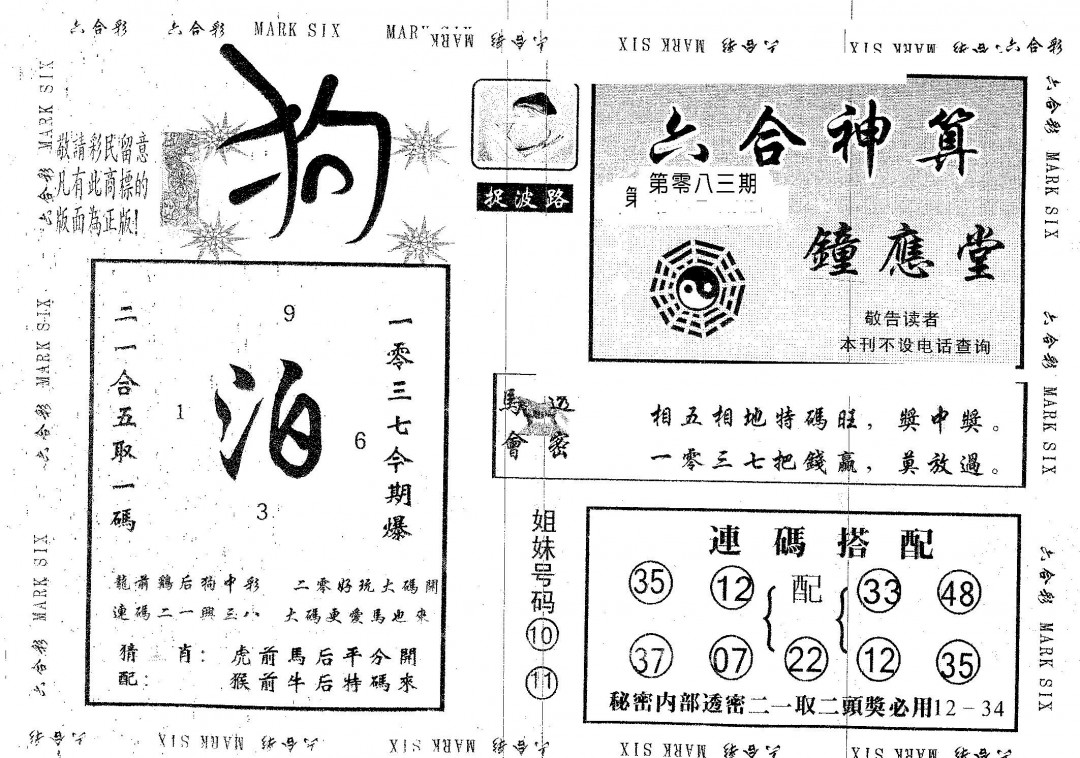 六合彩 六合彩 MARK SIX
狗
敬請彩民留意
凡有此商標的
版面為正版!
捉波路
六合神算
第零八三期
鐘應堂
敬告读者
本刊不设电话查询
二一合五取一碼
9
1
泊
6
3
一零三七今期爆
龍前鷄后狗中彩 二零好玩大碼開
連碼二一興三八 大碼更愛馬也來
猜 肖: 虎前馬后平分開
配: 猴前牛后特碼來
馬會
透密
相五相地特碼旺,獎中獎。
一零三七把錢贏,莫放過。
姐妹号码
10
11
連碼搭配
35 12 配 33 48
37 07 22 12 35
秘密内部透密二一取二頭獎必用12-34
六合彩 MARK SIX
六合彩 MARK SIX
六合彩 MARK SIX
六合彩 MARK SIX
六合彩 MARK SIX
六合彩 MARK SIX
六合彩 MARK SIX
六合彩 MARK SIX
六合彩 MARK SIX
六合彩 MARK SIX